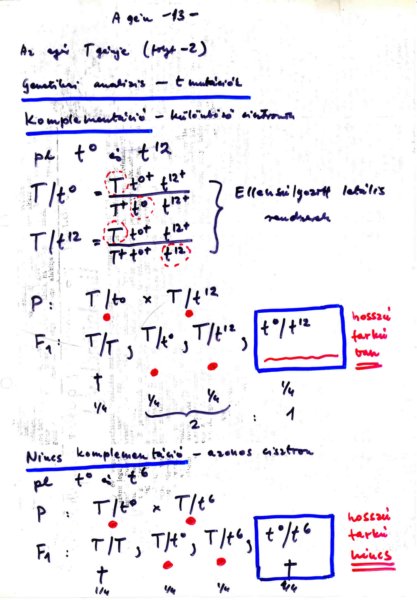 A gén -13-
Az egér T génje (folyt-2)
Genetikai analízis - t mutációk
Komplementáció - különböző cisztronok
pl t⁰ és t¹²
T/t⁰ = T t⁰⁺ t¹²⁺
T⁺ t⁰ t¹²⁺
T/t¹² = T t⁰⁺ t¹²⁺
T⁺ t⁰⁺ t¹²
Ellensúlyozott letális
rendszerek
P: T/t⁰ × T/t¹²
F₁: T/T, T/t⁰, T/t¹², t⁰/t¹²
hosszú
farkú
van
†
1/4 1/4 1/4 1/4
2 : 1
Nincs komplementáció - azonos cisztron
pl t⁰ és t⁶
P: T/t⁰ × T/t⁶
F₁: T/T, T/t⁰, T/t⁶, t⁰/t⁶
hosszú
farkú
nincs
† †
1/4 1/4 1/4 1/4